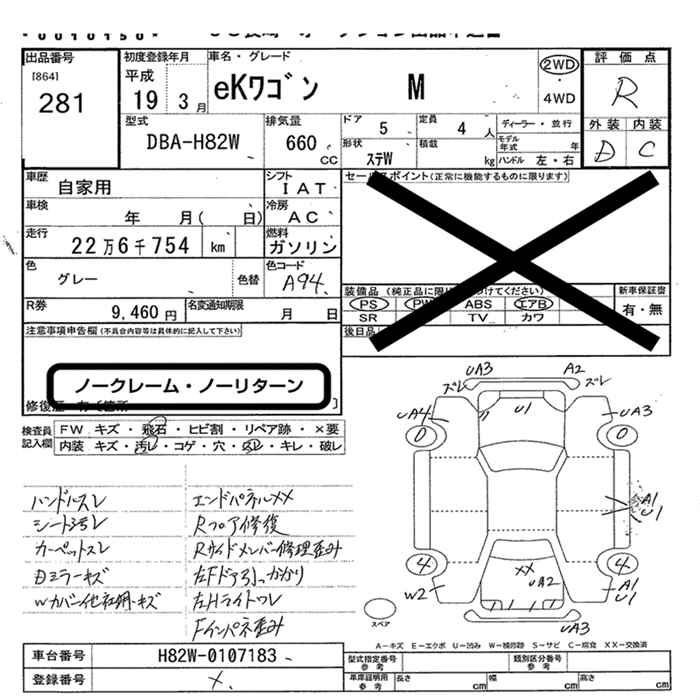 出品番号
[864]
281
初度登録年月
平成
19 3月
車名・グレード
eKワゴン M
2WD
・
4WD
評価点
R
型式
DBA-H82W
排気量
660
CC
ドア
5
定員
4 人
形状
ステW
積載
kg
ディーラー・並行
モデル年式 年
ハンドル 左・右
外装 内装
D C
車歴
自家用
シフト
IAT
車検
年 月( 日)
冷房
AC
走行
22万6千754 km
燃料
ガソリン
色
グレー
色替
色コード
A94
R券
9,460円
名変通知期限
月 日
セールスポイント(正常に機能するものに限ります)
PS PW ABS エアB
SR TV カワ
新車保証書
有・無
注意事項申告欄(不具合内容等は具体的に記入して下さい)
ノークレーム・ノーリターン
検査員
記入欄
FW キズ・飛石・ヒビ割・リペア跡・×要
内装 キズ・汚レ・コゲ・穴・スレ・キレ・破レ
ハンドルスレ
シート汚レ
カーペットスレ
Dミラーキズ
Wカバー他社鋼・キズ
エンドパネルXX
Rフロア修復
Rサイドメンバー修理歪み
左Fドア引っかかり
左Hライトワレ
Fインパネ歪み
UA3 A2
ズレ ズレ
UA4 U1 UA3
0 0
A1
U1
4 4
W2 XX UA2 A1
U1
UA3
スペア
A-キズ E-エクボ U-凹み W-補修跡 S-サビ C-腐食 XX-交換済
車台番号
H82W-0107183
登録番号
型式指定番号
参考
類別区分番号
参考
車庫証明用
参考
長さ cm
幅 cm
高さ cm